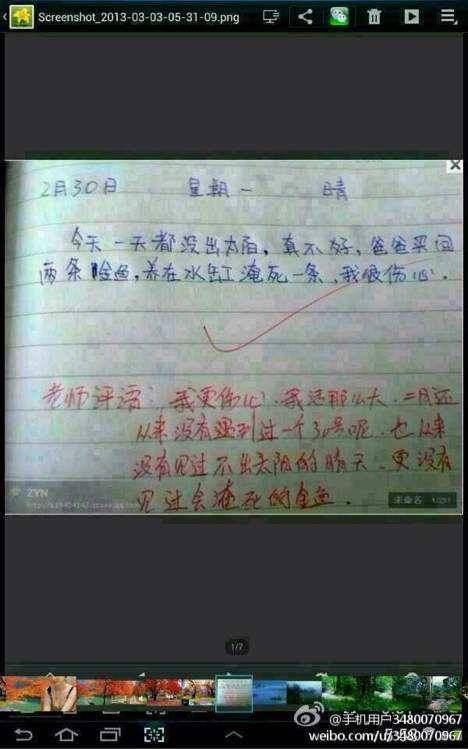 Screenshot_2013-03-03-05-31-09.png
2月30日 星期一 晴
今天一天都没出太阳,真不好,爸爸买回
两条金鱼,养在水缸淹死一条,我很伤心.
老师评语:我更伤心!我活那么大,二月还
从来没有遇到过一个30号呢,也从来
没有见过不出太阳的晴天,更没有
见过会淹死的金鱼.
ZYN
未命名
1/7
@手机用户3480070967
weibo.com/u/3480070967